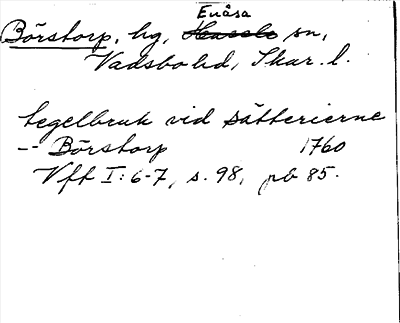 Enåsa
Börstorp, hg, Hassle sn,
Vadsbo hd, Skar. l.
tegelbruk vid sätterierne
-- Börstorp 1760
Vft I: 6-7, s. 98, pb 85.